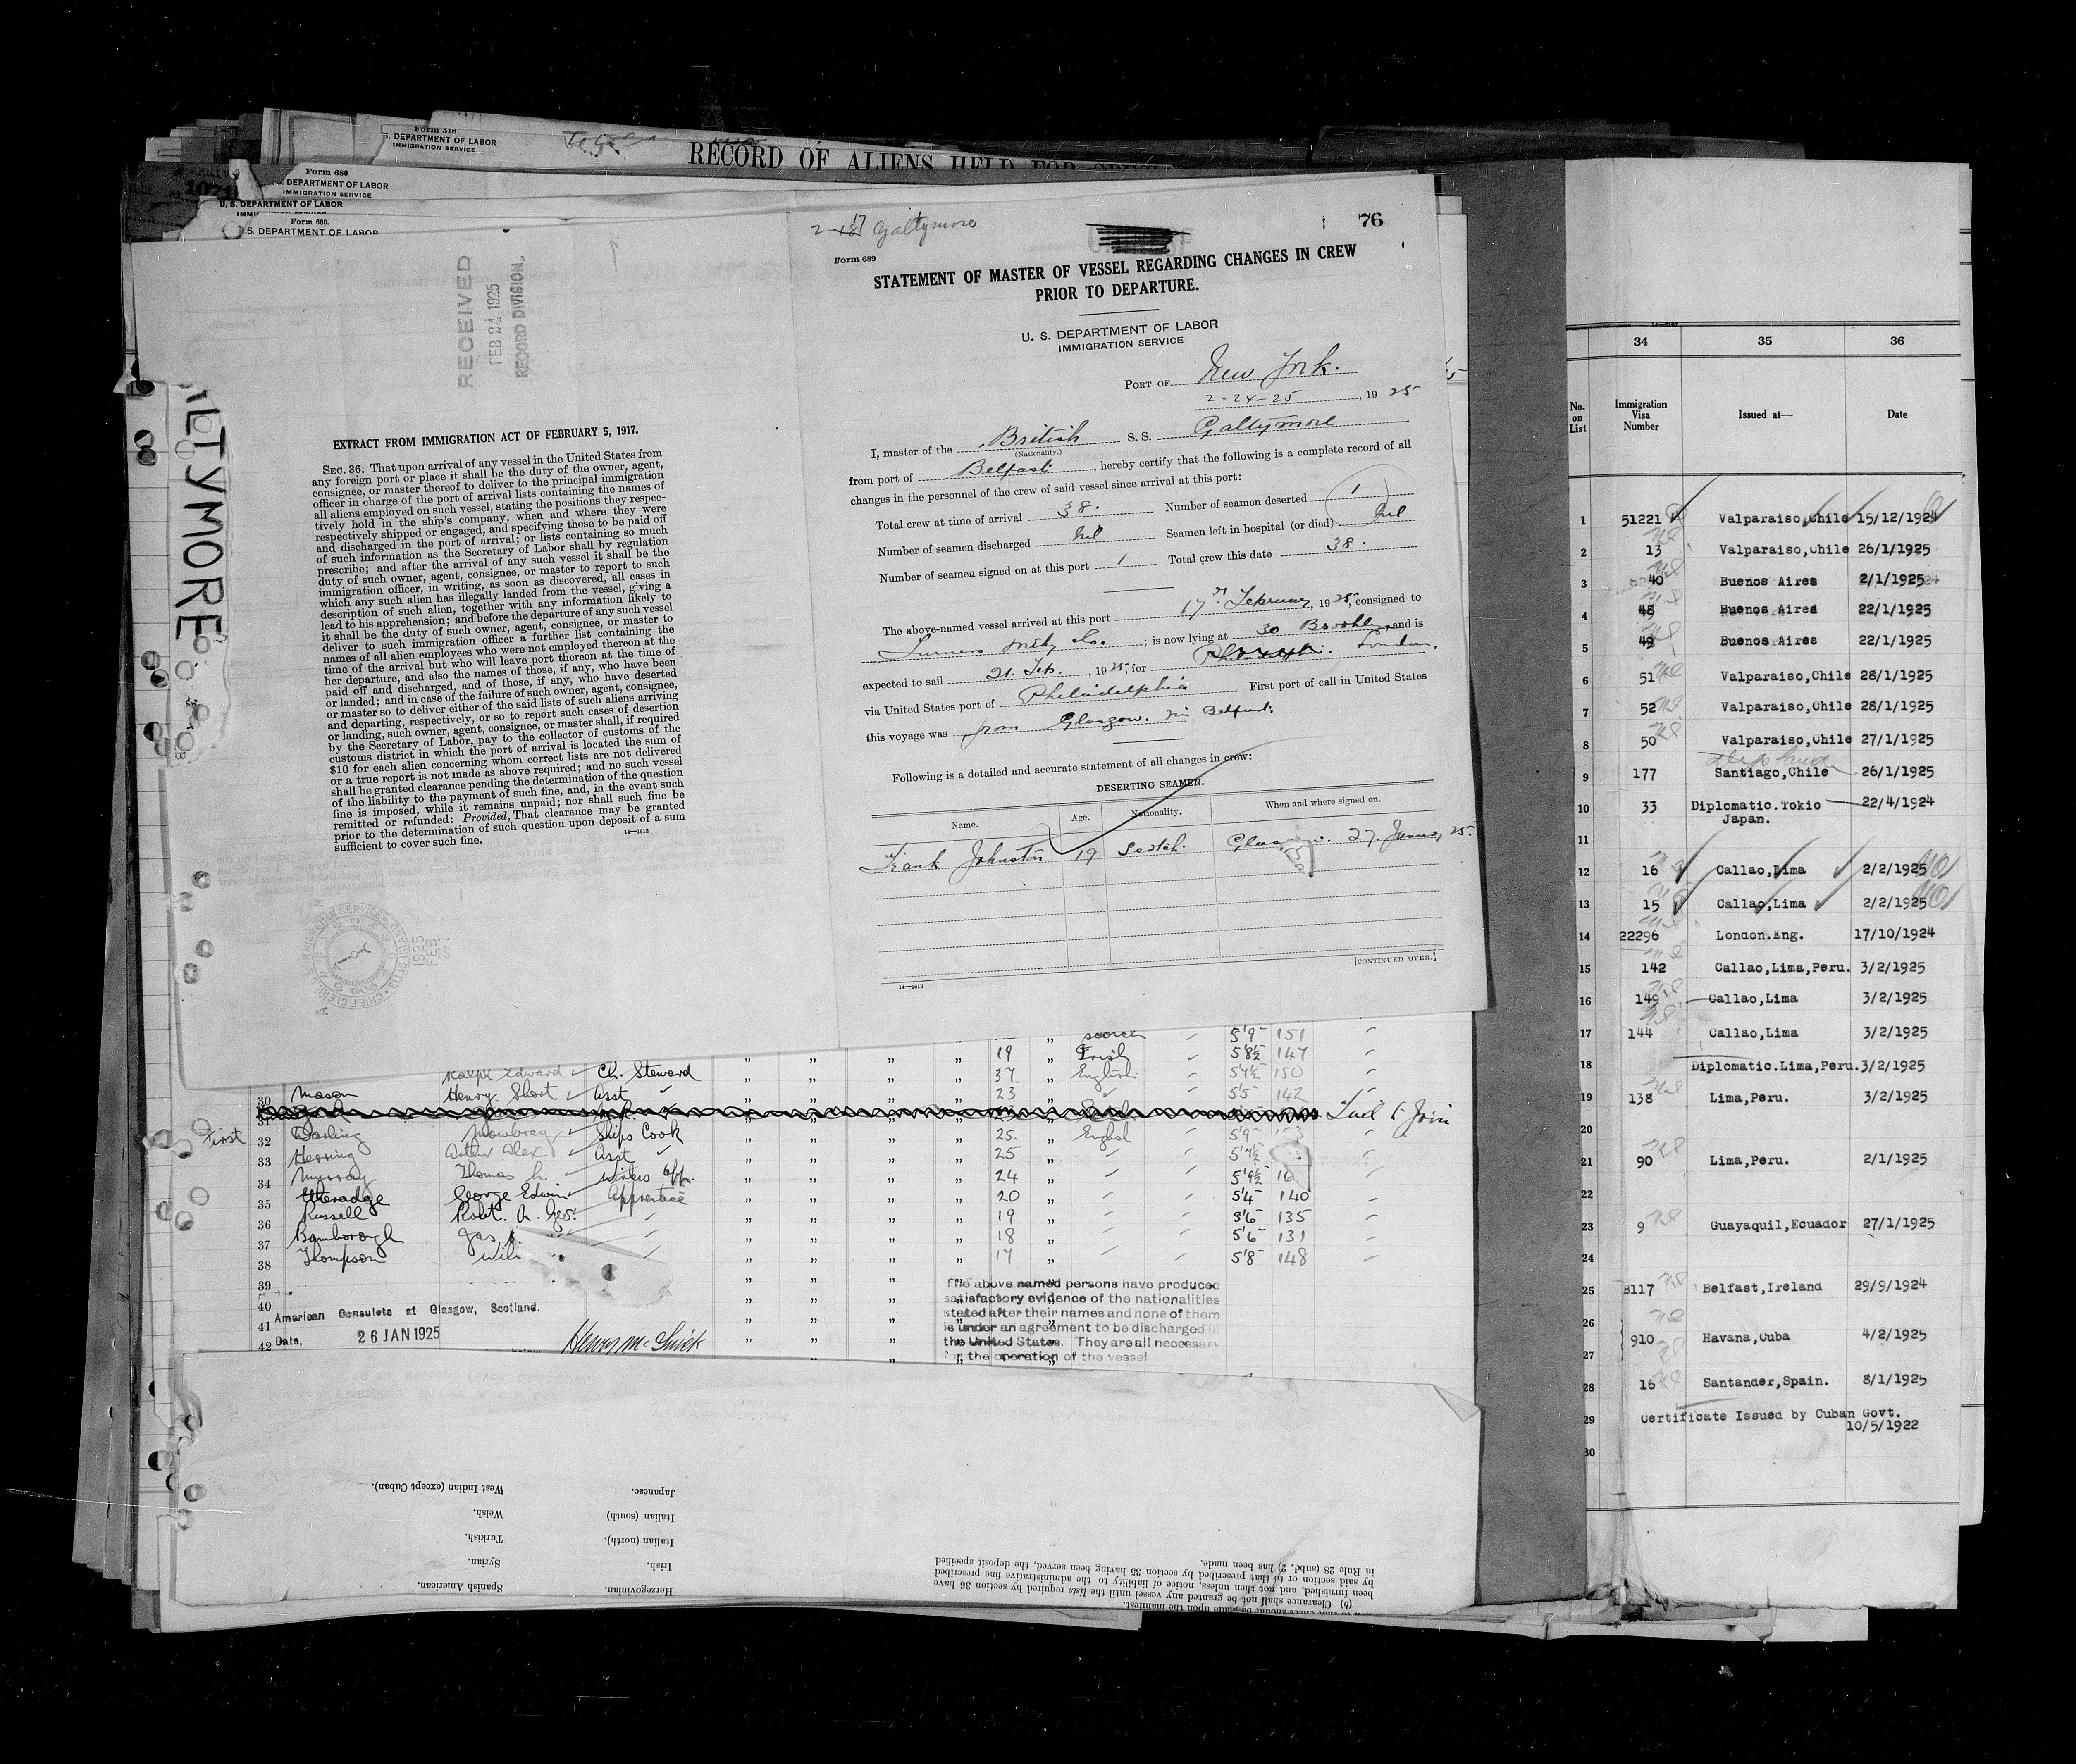 Form 518
S. DEPARTMENT OF LABOR
IMMIGRATION SERVICE
RECORD OF ALIENS HELD FOR
Form 680
S. DEPARTMENT OF LABOR
IMMIGRATION SERVICE
U. S. DEPARTMENT OF LABOR
Form 680.
U.S. DEPARTMENT OF LABOR
LTYMORE
RECEIVED
FEB 24 1925
RECORD DIVISION,
EXTRACT FROM IMMIGRATION ACT OF FEBRUARY 5, 1917.
SEC. 36. That upon arrival of any vessel in the United States from
any foreign port or place it shall be the duty of the owner, agent,
consignee, or master thereof to deliver to the principal immigration
officer in charge of the port of arrival lists containing the names of
all aliens employed on such vessel, stating the positions they respec-
tively hold in the ship's company, when and where they were
respectively shipped or engaged, and specifying those to be paid off
and discharged in the port of arrival; or lists containing so much
of such information as the Secretary of Labor shall by regulation
prescribe; and after the arrival of any such vessel it shall be the
duty of such owner, agent, consignee, or master to report to such
immigration officer, in writing, as soon as discovered, all cases in
which any such alien has illegally landed from the vessel, giving a
description of such alien, together with any information likely to
lead to his apprehension; and before the departure of any such vessel
it shall be the duty of such owner, agent, consignee, or master to
deliver to such immigration officer a further list containing the
names of all alien employees who were not employed thereon at the
time of the arrival but who will leave port thereon at the time of
her departure, and also the names of those, if any, who have been
paid off and discharged, and of those, if any, who have deserted
or landed; and in case of the failure of such owner, agent, consignee,
or master so to deliver either of the said lists of such aliens arriving
and departing, respectively, or so to report such cases of desertion
or landing, such owner, agent, consignee, or master shall, if required
by the Secretary of Labor, pay to the collector of customs of the
customs district in which the port of arrival is located the sum of
$10 for each alien concerning whom correct lists are not delivered
or a true report is not made as above required; and no such vessel
shall be granted clearance pending the determination of the question
of the liability to the payment of such fine, and, in the event such
fine is imposed, while it remains unpaid; nor shall such fine be
remitted or refunded: Provided, That clearance may be granted
prior to the determination of such question upon deposit of a sum
sufficient to cover such fine.
14—1613
2-17 Galtymore
76
Form 689
STATEMENT OF MASTER OF VESSEL REGARDING CHANGES IN CREW
PRIOR TO DEPARTURE.
U. S. DEPARTMENT OF LABOR
IMMIGRATION SERVICE
PORT OF New York.
2-24-25, 19 25
I, master of the British S. S. Galtymore
(Nationality.)
from port of Belfast, hereby certify that the following is a complete record of all
changes in the personnel of the crew of said vessel since arrival at this port:
Total crew at time of arrival 38. Number of seamen deserted 1
Number of seamen discharged Nil Seamen left in hospital (or died) Nil
Number of seamen signed on at this port 1 Total crew this date 38.
The above-named vessel arrived at this port 17 February, 1925, consigned to
Withy Co. ; is now lying at 30 Brooklyn and is
expected to sail 21. Feb. , 1925, for London.
via United States port of Philadelphia First port of call in United States
this voyage was from Glasgow. via Belfast.
Following is a detailed and accurate statement of all changes in crew:
DESERTING SEAMEN.
Name. Age. Nationality. When and where signed on.
Frank Johnston 19 Scotch. Glasgow. 27. January 25.
[CONTINUED OVER.]
14—1613
5'9 151
19 " Irish 5'8½ 147
Ralph Edward Ch. Steward 37 " English 5'7½ 150
30 Mason Henry Short Asst 23 " 5'5 142
31 Fail to Join
First 32 Darling Mowbray Ships Cook 25. " English 5'9
33 Herring Arthur Alex. Asst 25 "
34 Murray Thomas 24 " 5'9½
35 Etheradge George Edwin Apprentice 20 " 5'4 140
36 Russell Robt. 19 " 5'6 135
37 Bamborough 18 " 5'6 131
38 Thompson 17 " 5'8 148
39
40
41
42
The above named persons have produced
satisfactory evidence of the nationalities
stated after their names and none of them
is under an agreement to be discharged in
the United States. They are all necessary
for the operation of the vessel
American Consulate at Glasgow, Scotland.
Date, 26 JAN 1925
West Indian (except Cuban).
Welsh.
Turkish.
Syrian.
Spanish American.
Japanese.
Italian (south)
Italian (north).
Irish.
Herzegovinian.
(b) Clearance shall not be granted any vessel until the lists required by section 36 have
been furnished, and not then unless, notice of liability to the administrative fine prescribed
by said section or to that prescribed by section 35 having been served, the deposit specified
in Rule 28 (subd. 2) has been made.
34 35 36
No. on List Immigration Visa Number Issued at— Date
1 51221 Valparaiso,Chile 15/12/1924
2 13 Valparaiso,Chile 26/1/1925
3 40 Buenos Aires 2/1/1925
4 48 Buenos Aires 22/1/1925
5 49 Buenos Aires 22/1/1925
6 51 Valparaiso,Chile 28/1/1925
7 52 Valparaiso,Chile 28/1/1925
8 50 Valparaiso,Chile 27/1/1925
9 177 Santiago,Chile 26/1/1925
10 33 Diplomatic.Tokio 22/4/1924
Japan.
11
12 16 Callao,Lima 2/2/1925
13 15 Callao,Lima 2/2/1925
14 22296 London.Eng. 17/10/1924
15 142 Callao,Lima,Peru. 3/2/1925
16 149 Callao,Lima 3/2/1925
17 144 Callao,Lima 3/2/1925
18 Diplomatic.Lima,Peru. 3/2/1925
19 138 Lima,Peru. 3/2/1925
20
21 90 Lima,Peru. 2/1/1925
22
23 9 Guayaquil,Ecuador 27/1/1925
24
25 8117 Belfast,Ireland 29/9/1924
26
910 Havana,Cuba 4/2/1925
27
28 16 Santander,Spain. 8/1/1925
29 Certificate Issued by Cuban Govt.
10/5/1922
30